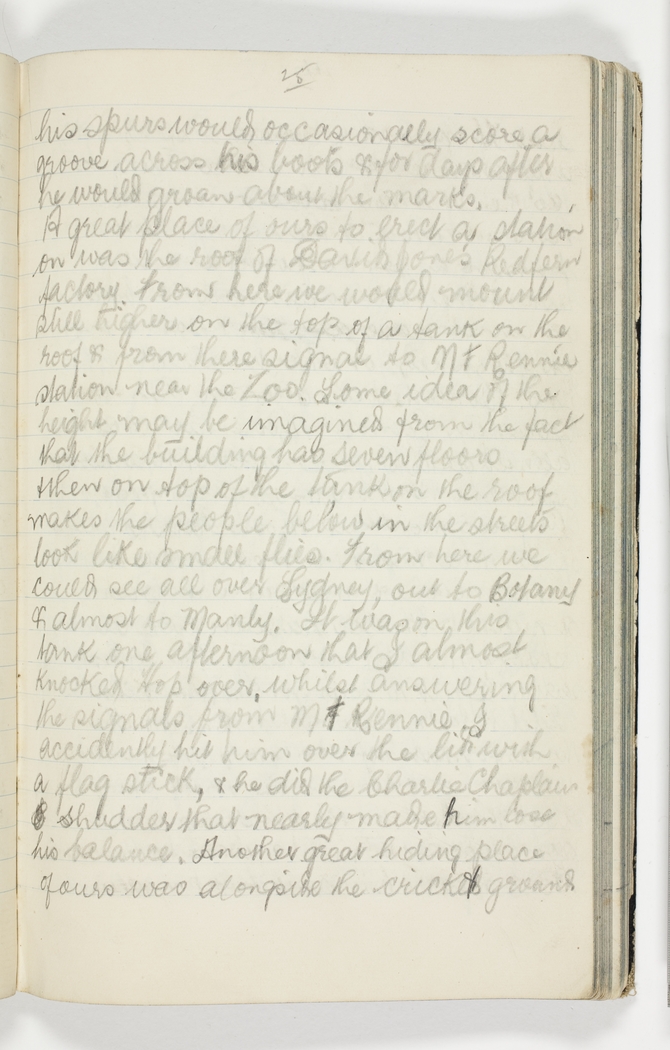 25
his spurs would occasionally score a
groove across his boots & for days after
he would groan about the marks.
A great place of ours to erect a station
on was the roof of David Jones Redfern
factory. From here we would mount
still higher on the top of a tank on the
roof & from there signal to Mt Rennie
station near the Zoo. Some idea of the
height may be imagined from the fact
that the building has seven floors
then on top of the tank on the roof
makes the people below in the streets
look like small flies. From here we
could see all over Sydney, out to Botany
& almost to Manly. It was on this
tank one afternoon that I almost
knocked Hop over, whilst answering
the signals from Mt Rennie I
accidently hit him over the with
a flag stick, & he did the Charlie Chaplain
shudder that nearly made him lose
his balance. Another great hiding place
of ours was alongside the cricket ground